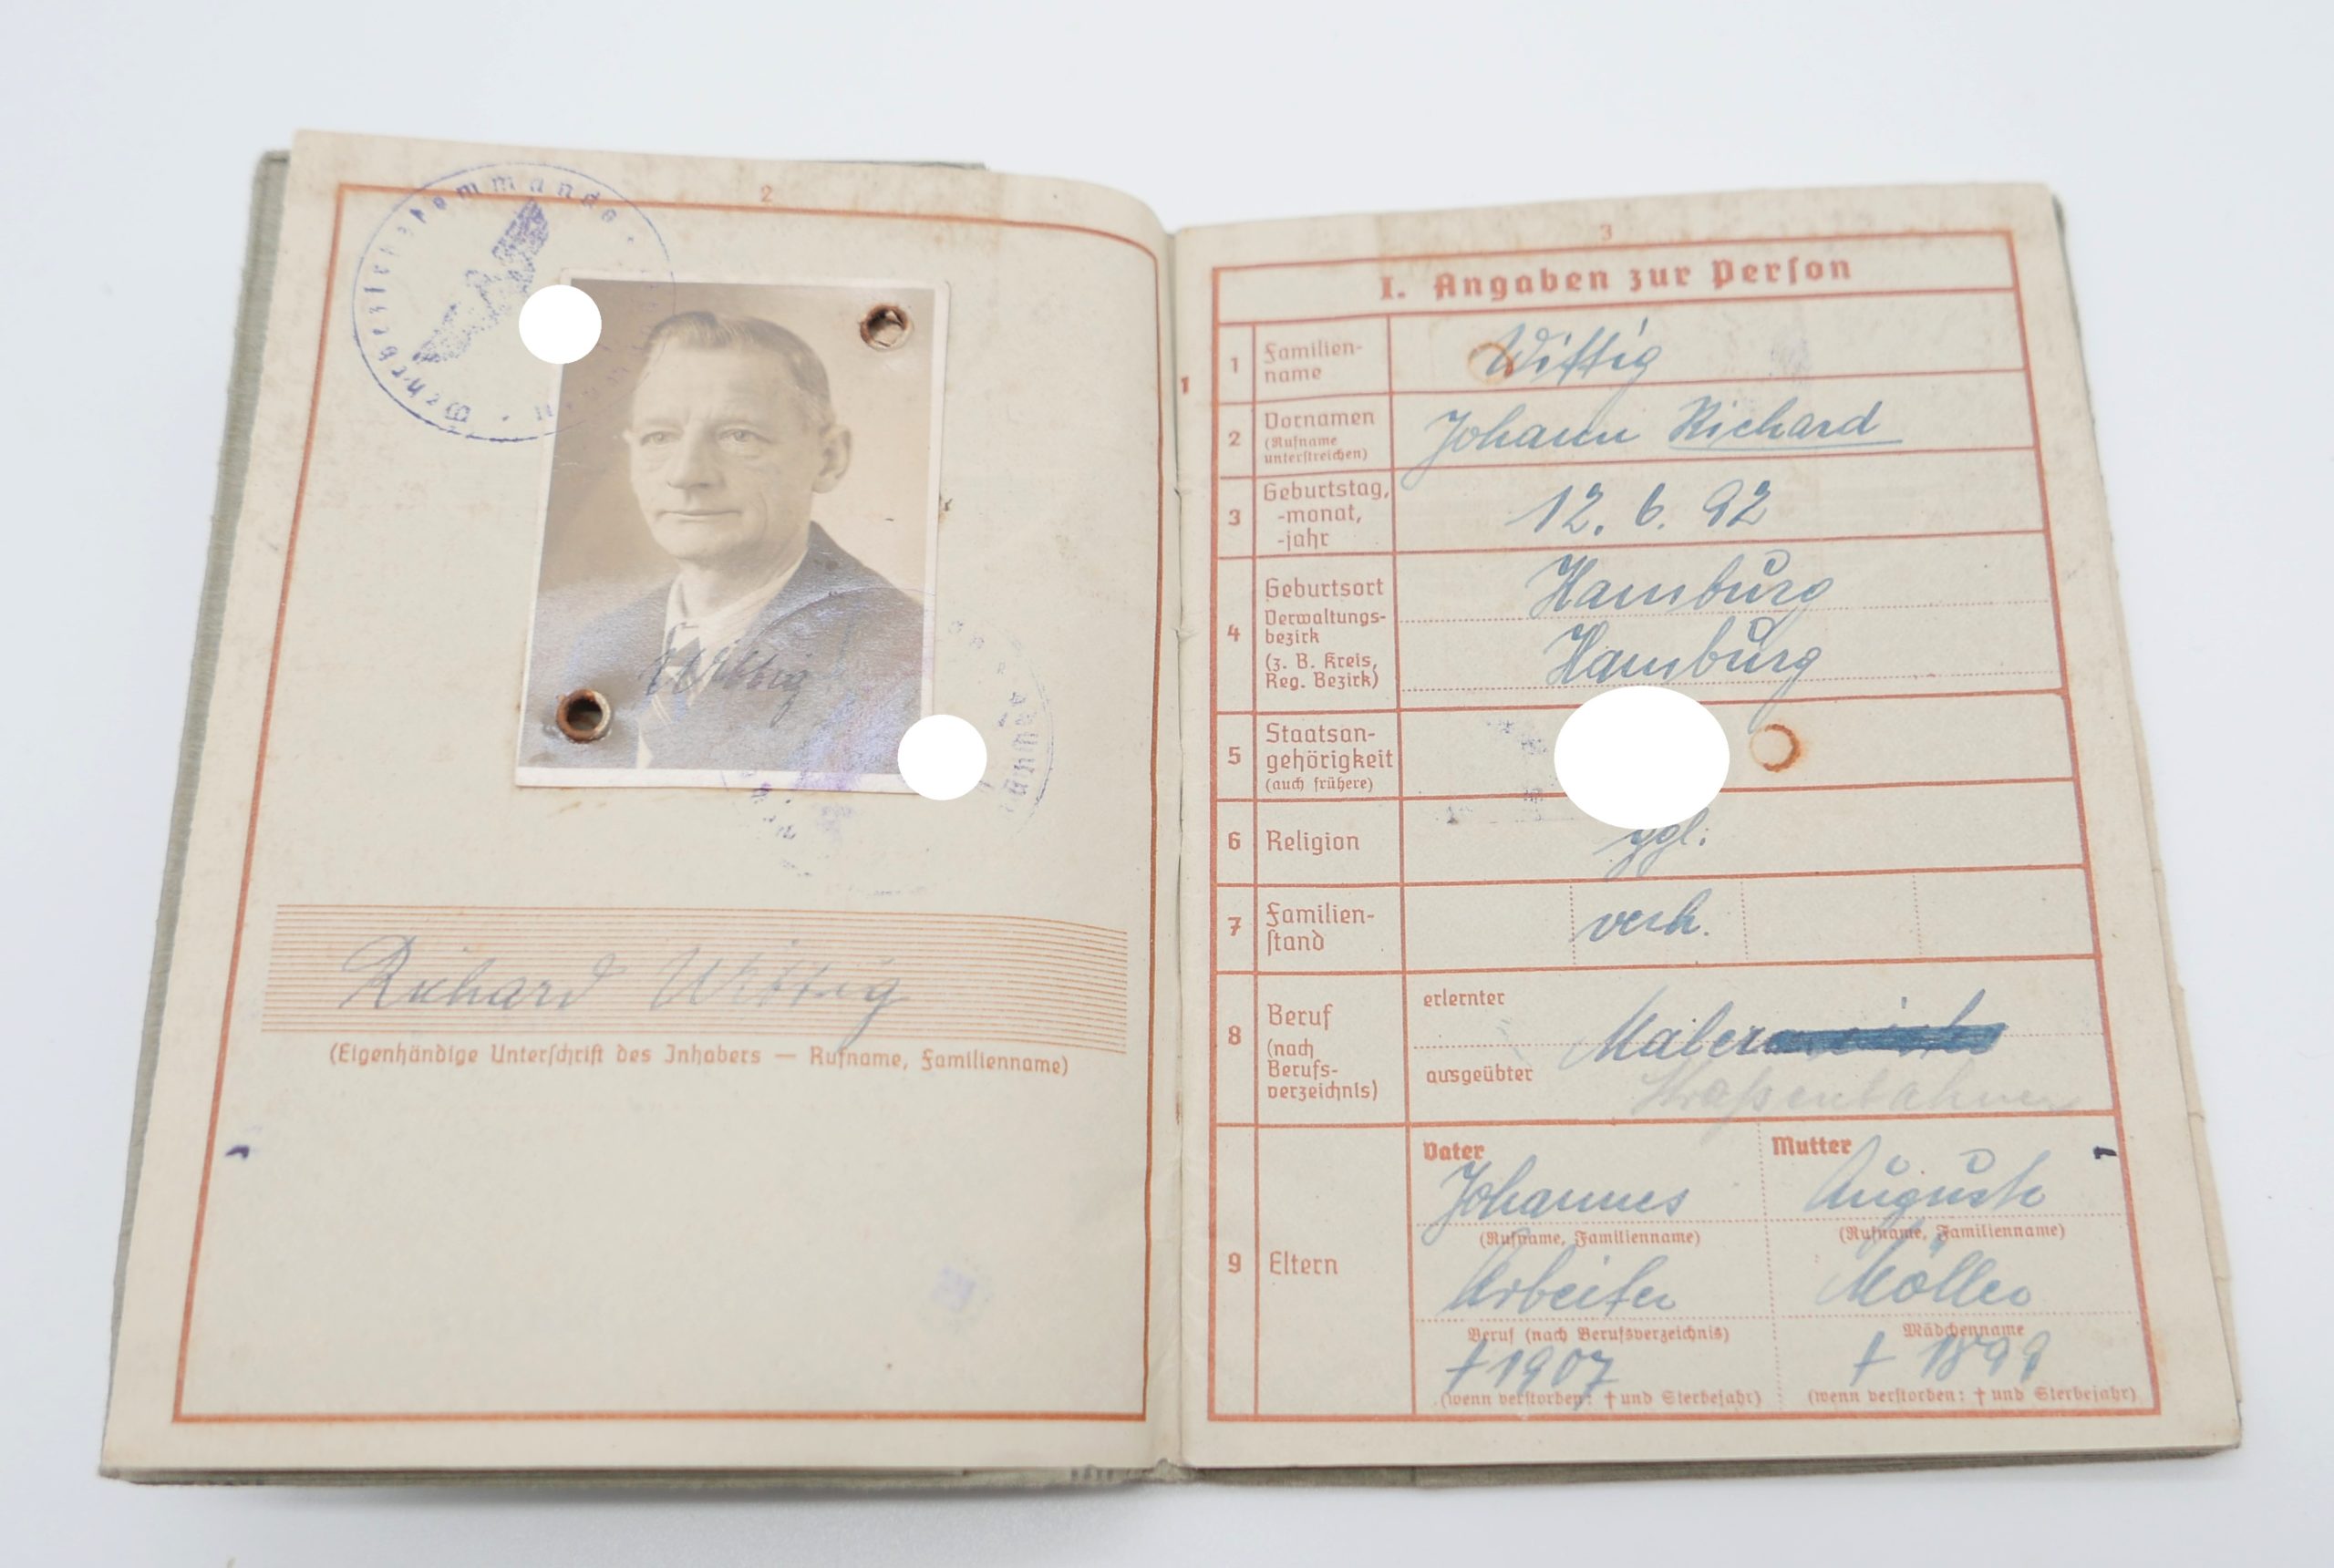 2
Wehrbezirkskommando
Wittig
Richard Wittig
(Eigenhändige Unterschrift des Inhabers — Rufname, Familienname)
3
I. Angaben zur Person
1
1 Familien-
name
Wittig
2 Vornamen
(Rufname
unterstreichen)
Johann Richard
3 Geburtstag,
-monat,
-jahr
12. 6. 92
4 Geburtsort
Hamburg
Verwaltungs-
bezirk
(z. B. Kreis,
Reg. Bezirk)
Hamburg
5 Staatsan-
gehörigkeit
(auch frühere)
6 Religion
ggl.
7 Familien-
stand
verh.
8 Beruf
(nach
Berufs-
verzeichnis)
erlernter
Maler
ausgeübter
Straßenbahner
9 Eltern
Vater Mutter
Johannes Auguste
(Rufname, Familienname) (Rufname, Familienname)
Arbeiter Möller
Beruf (nach Berufsverzeichnis) Mädchenname
† 1907 † 1899
(wenn verstorben: † und Sterbejahr) (wenn verstorben: † und Sterbejahr)